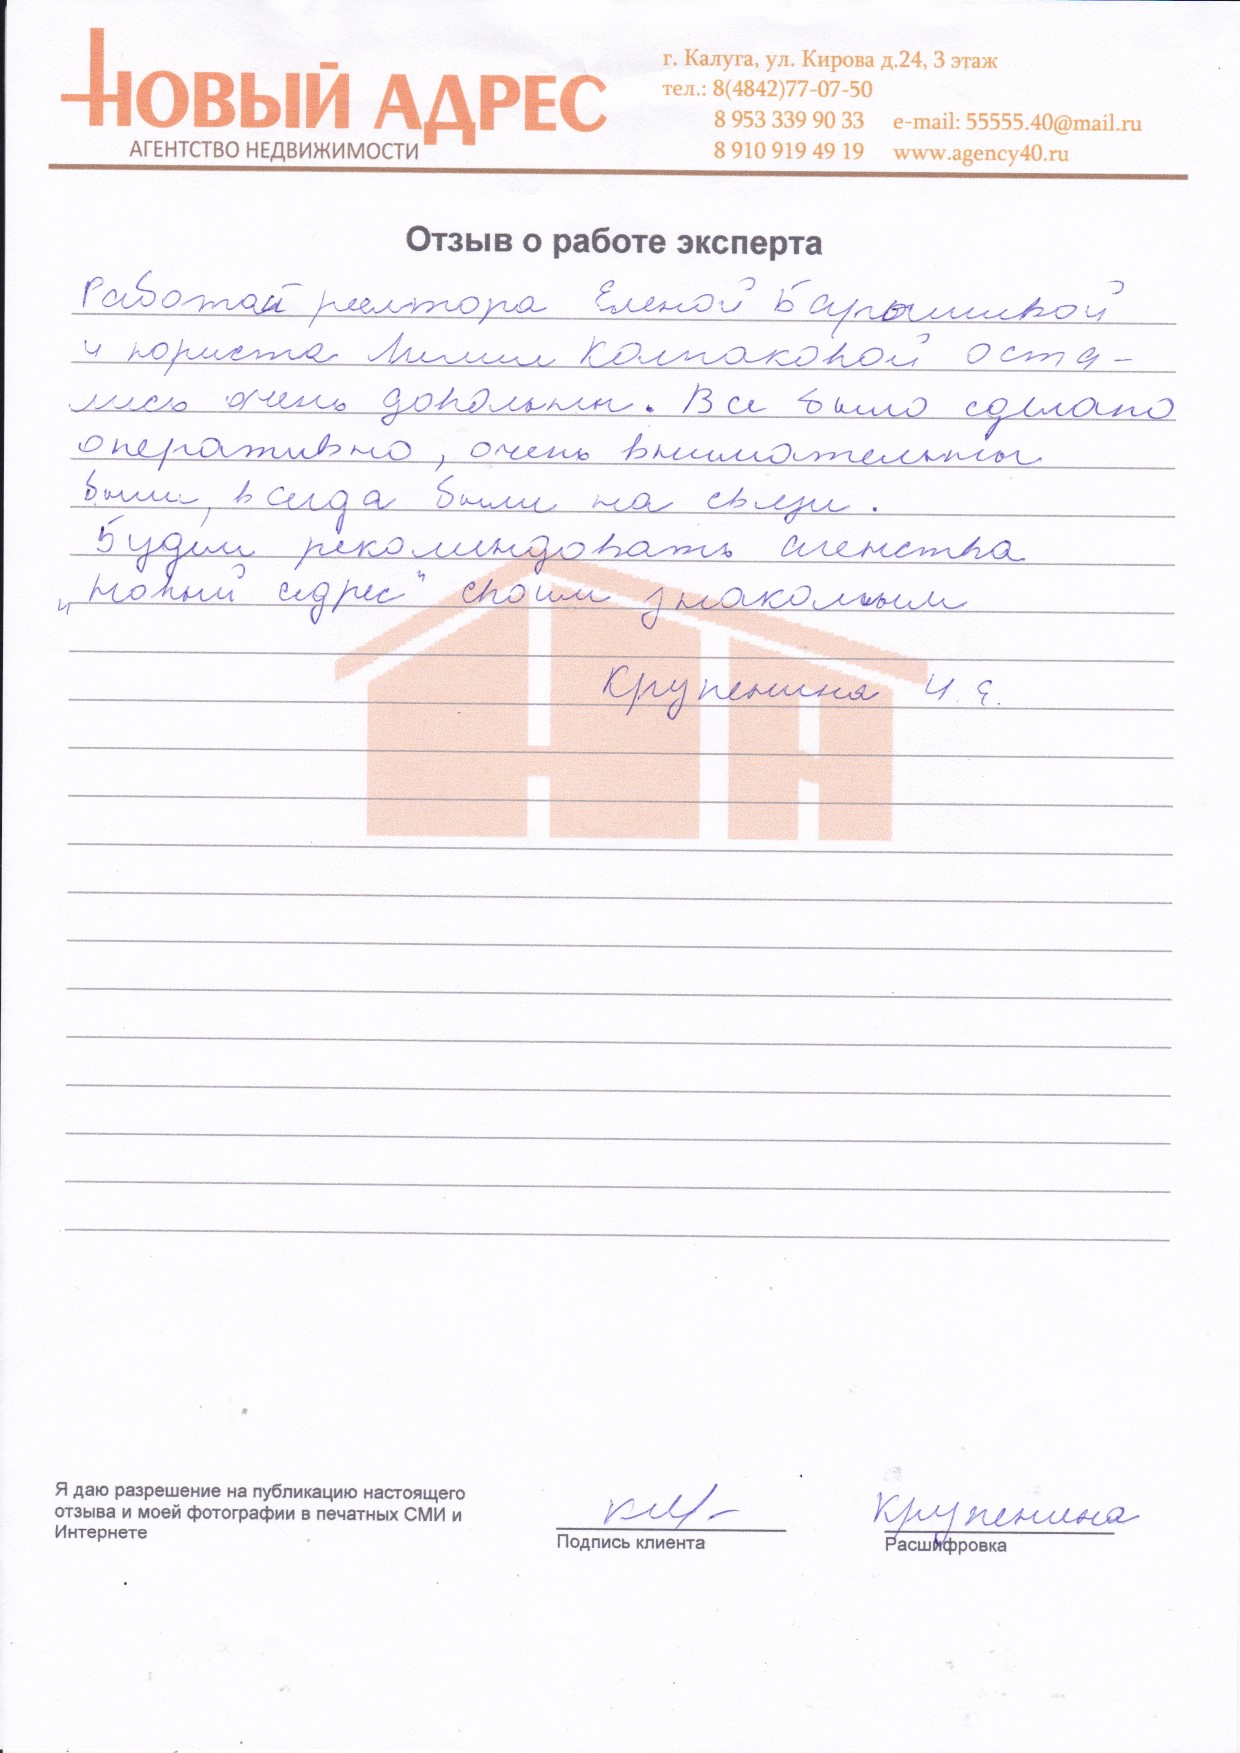 НОВЫЙ АДРЕС
АГЕНТСТВО НЕДВИЖИМОСТИ
г. Калуга, ул. Кирова д.24, 3 этаж
тел.: 8(4842)77-07-50
8 953 339 90 33 e-mail: 55555.40@mail.ru
8 910 919 49 19 www.agency40.ru
Отзыв о работе эксперта
Работай риелтора Еленой Барышивой
и юриста Колпаковой оста-
лись очень довольны. Все было сделано
оперативно, очень внимательны
были, всегда были на связи.
Будем рекомендовать агенства
"Новый адрес" своим знакомым
Крупенина И. Е.
Я даю разрешение на публикацию настоящего
отзыва и моей фотографии в печатных СМИ и
Интернете
Подпись клиента
Крупенина
Расшифровка